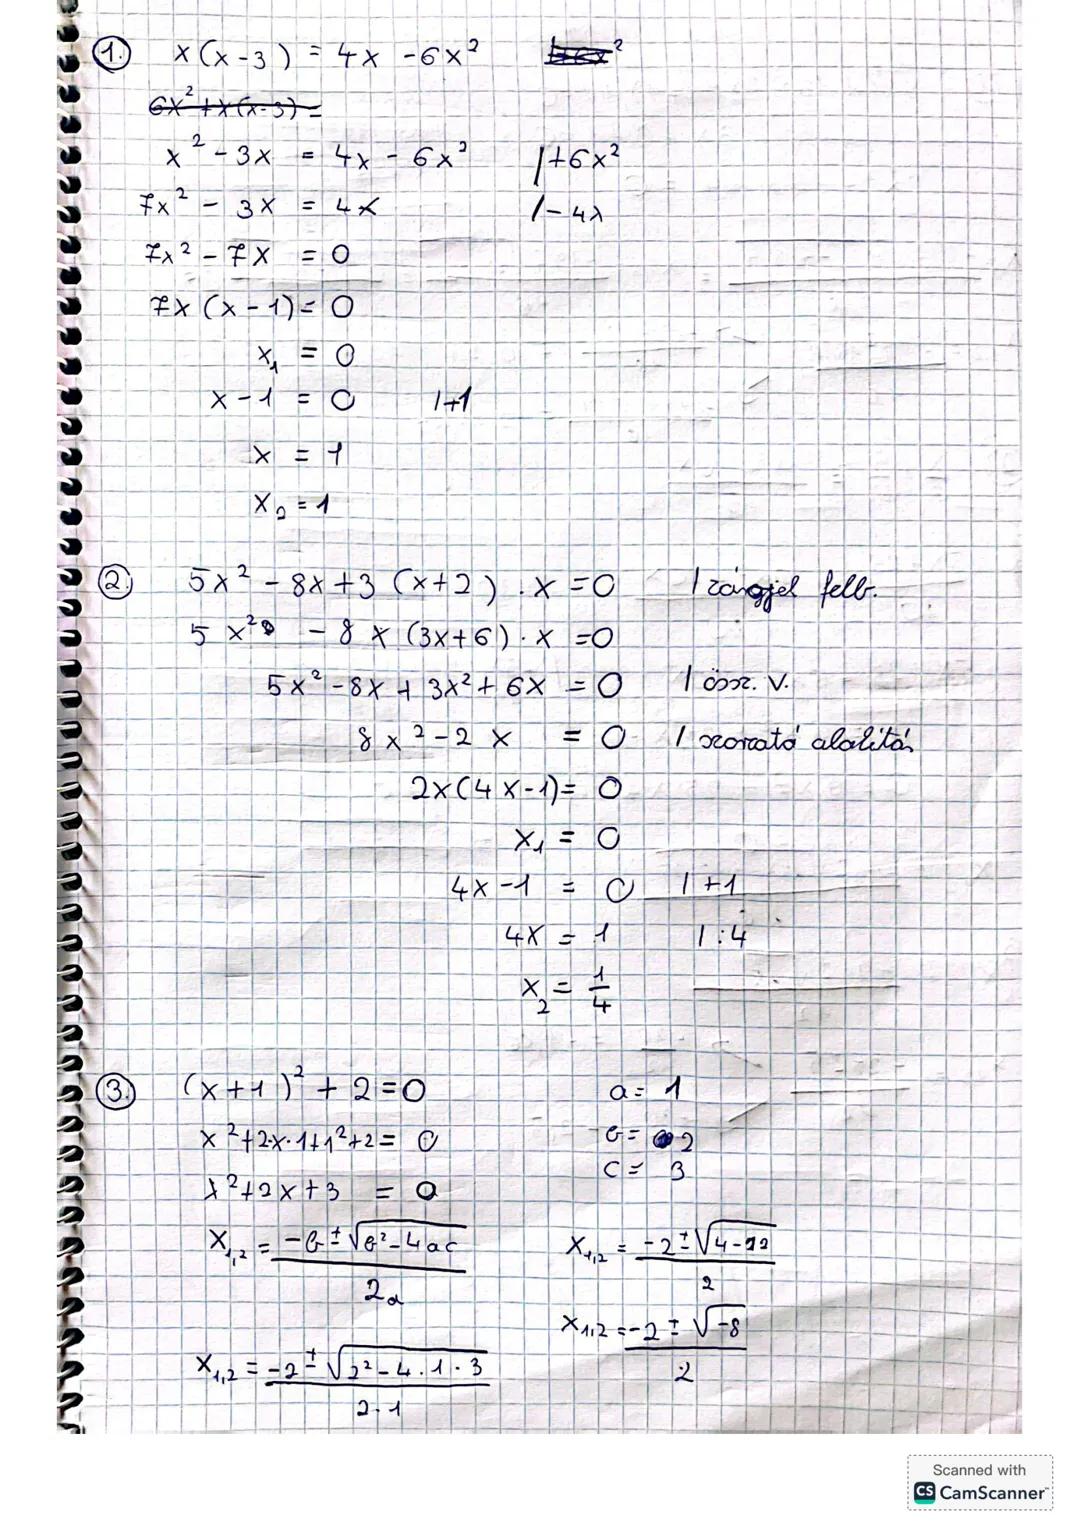 1. x(x-3) = 4x -6x²
6x²+x(x-3)=
x² - 3x = 4x - 6x² /+6x²
7x² - 3x = 4x /-4x
7x² - 7x = 0
7x(x-1)= 0
x₁ = 0
x-1 = 0 /+1
x = 1
x₂ = 1
2. 5x² - 8x+3 (x+2) · x =0 / zárójel felb.
5x² - 8x (3x+6) · x =0
5x²-8x + 3x²+ 6x = 0 / össz. v.
8x²-2x = 0 / szorzattá alakítás
2x(4x-1)= 0
x₁ = 0
4x-1 = 0 /+1
4x = 1 /:4
x₂ = 1/4
3. (x+1)² + 2=0 a= 1
x²+2·x·1+1²+2= 0 b= 2
c= 3
x²+2x+3 = 0
x₁,₂ = (-b±√(b²-4ac))/2a x₁,₂ = (-2±√(4-12))/2
x₁,₂ = (-2±√-8)/2
x₁,₂ = (-2±√(2²-4·1·3))/2·1
Scanned with
CS CamScanner